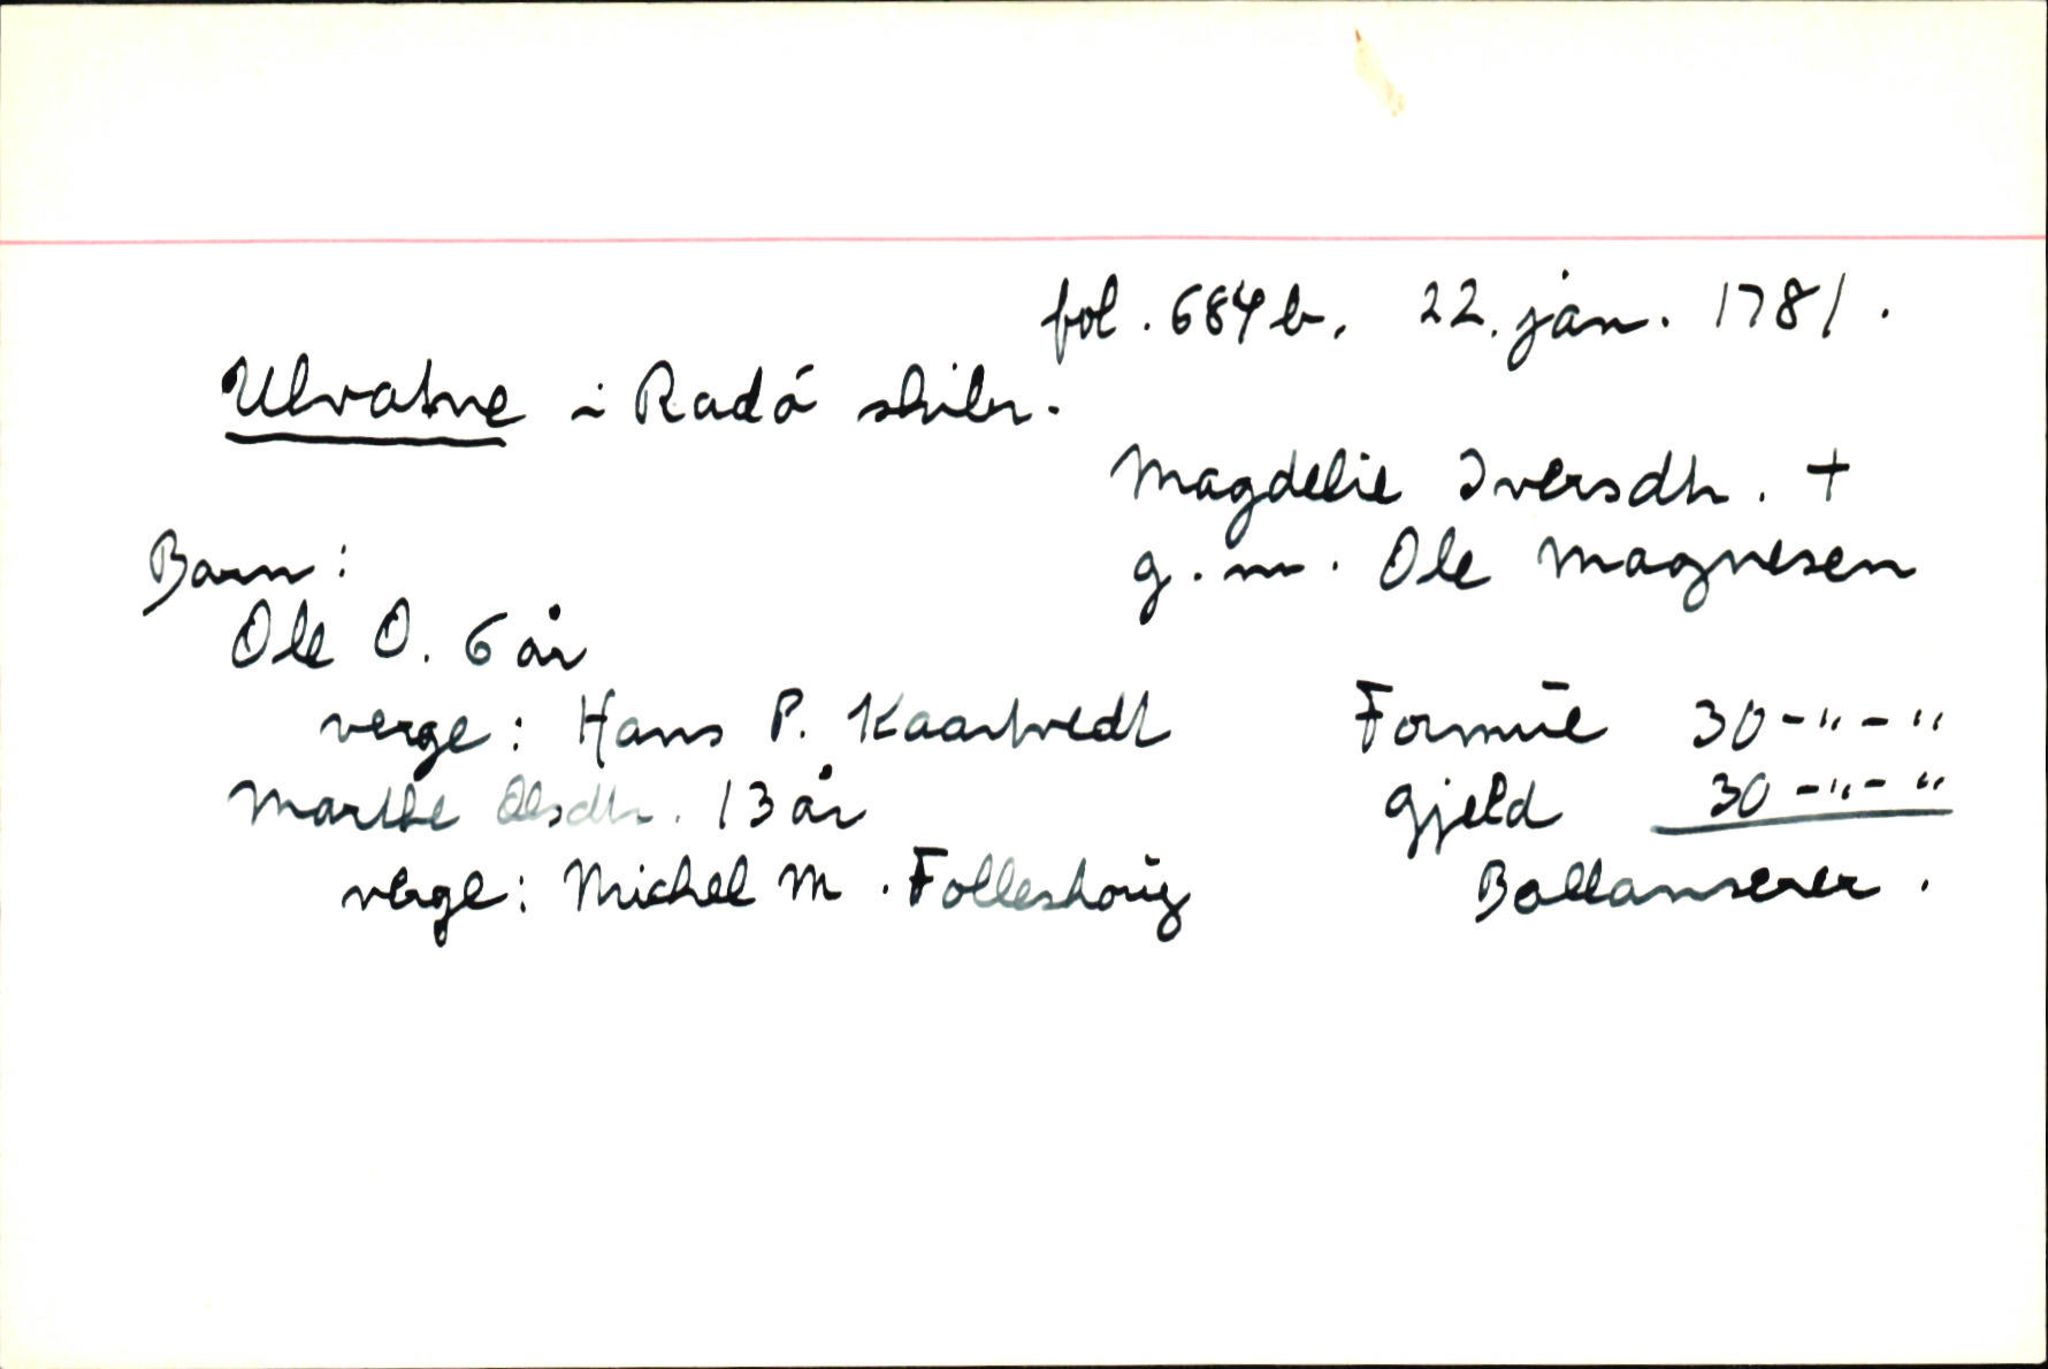 fol. 684b, 22. jan. 1781.
Ulvatne i Radö skibr.
Magdelie Iversdtr. +
Barn:
g. m. Ole Magnesen
Ole O. 6 år
verge: Hans P. Kaartvedt
Formūe 30-"-"
Marthe Olsdtr. 13 år
Gjeld 30-"-"
verge: Michel M. Folleshoūg
Ballanserer.